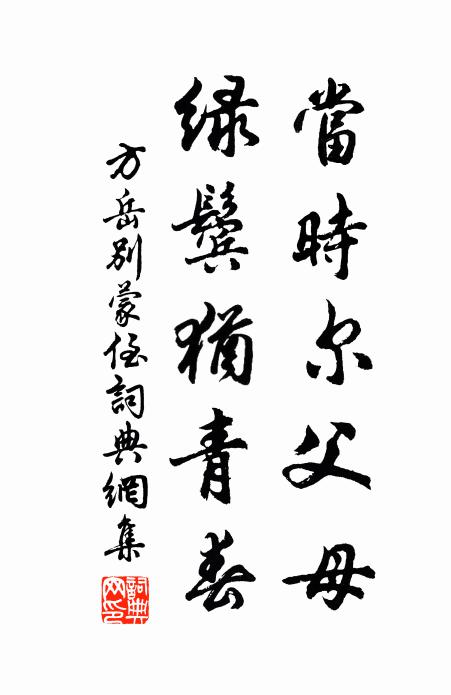 當時尔父母
緑鬓猶青春
方岳别蒙侄詞典網集
詞典網印